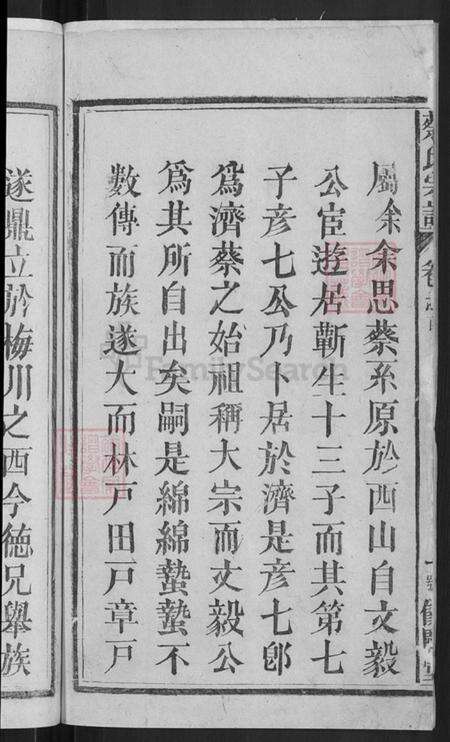 蔡氏宗譜 卷
屬余余思蔡系原於西山自文毅
公宦遊居蘄生十三子而其第七
子彥七公乃卜居於濟是彥七郎
爲濟蔡之始祖稱大宗而文毅公
爲其所自出矣嗣是綿綿蟄蟄不
數傳而族遂大而林戶田戶章戶
遂鼎立於梅川之西今德兄舉族
FamilySearch